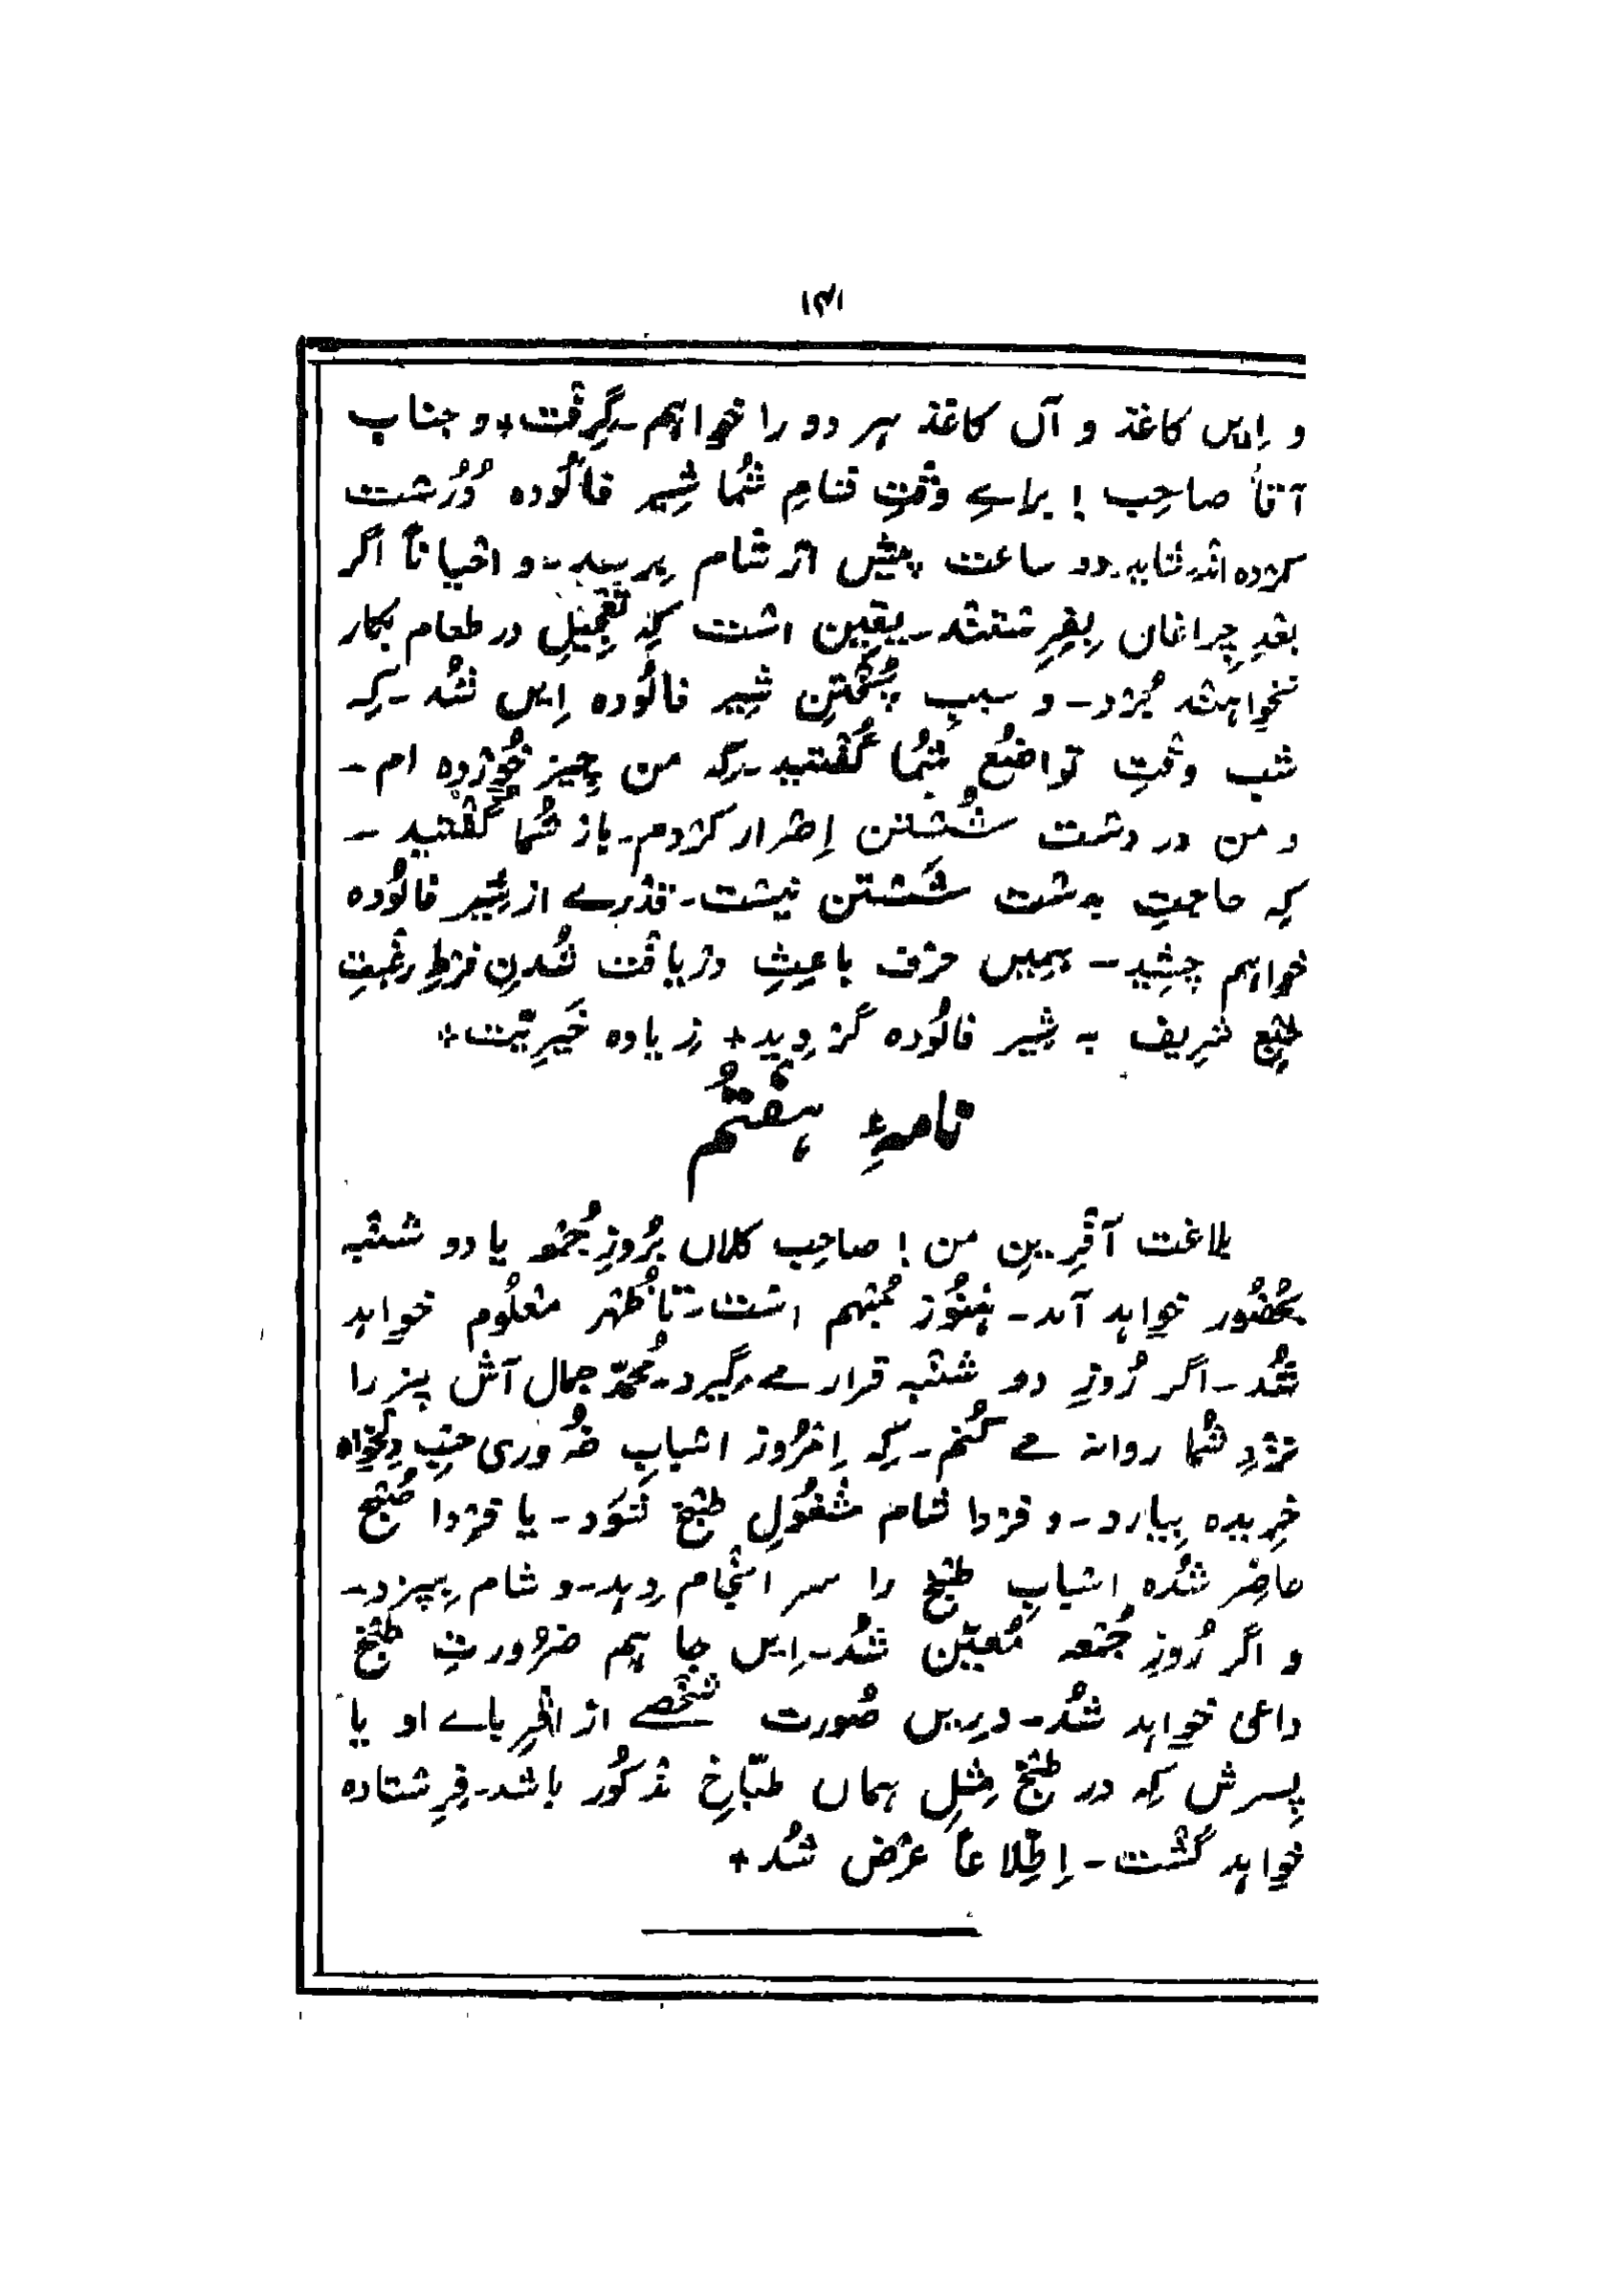 ۱۴۱
و اِیں کاغذ و آں کاغذ ہر دو را خواہم ـ گِرِفْت + و جنابِ
آقا صاحِب ! براے وقْتِ شامِ شُما شِیر فالُوده دُرُشت
کرْده اند شاید ـ دو ساعت پیْش از شام بِرسِید ـ و احْیاناً اگر
بعْدِ چِراغاں بِفِرِسْتنْد ـ یقِین اسْت کِہ تعْجِیل در طعام بکار
نخواہنْد بُرْد ـ و سببِ پُخْتنِ شِیر فالُوده اِیں شُد ـ کِہ
شب وقْتِ تواضُع شُما گُفْتید ـ کِہ من چِیز خُورْده ام ـ
و من در دسْت شُسْتن اِصْرار کرْدم ـ باز شُما گُفْتید ـ
کِہ حاجتِ دسْت شُسْتن نِیسْت ـ قدْرے از شِیر فالُوده
خواہم چشِید ـ ہمِیں حرْف باعِثِ درْیافْت شُدنِ فرْطِ رغْبتِ
طبْعِ شرِیف بہ شِیر فالُوده گرْدِید + زِیاده خَیرِیّت +
نامۂِ ہفْتُم
بلاغت آفْرِینِ من ! صاحِب کلاں بُروزِ جُمْعہ یا دو شنْبہ
بحُضُور خواہد آمد ـ ہنُوز مُبْہم اسْت ـ تا ظُہر معْلُوم خواہد
شُد ـ اگر رُوزِ دو شنْبہ قرار مے گِیرد ـ مُحمّد جمال آش پز را
نزْدِ شُما روانہ مے کُنم ـ کِہ اِمْرُوز اسْبابِ ضرُوری حسْبِ دِلْخواه
خرِیده بِیارد ـ و فرْدا شام مشْغُولِ طبْخ شوَد ـ یا فرْدا صُبْح
حاضِر شُده اسْبابِ طبْخ را سر انْجام دِہد ـ و شام بِپزد ـ
و اگر رُوزِ جُمْعہ مُعیّن شُد ـ اِیں جا ہم ضرُورتِ طبْخ
داعی خواہد شُد ـ درِیں صُورت شخْصے از اقْرِباے او یا
پِسرش کِہ در طبْخ مِثْلِ ہماں طبّاخِ مذْکُور باشد ـ فِرِسْتاده
خواہد گشْت ـ اِطِّلاعاً عرْض شُد +